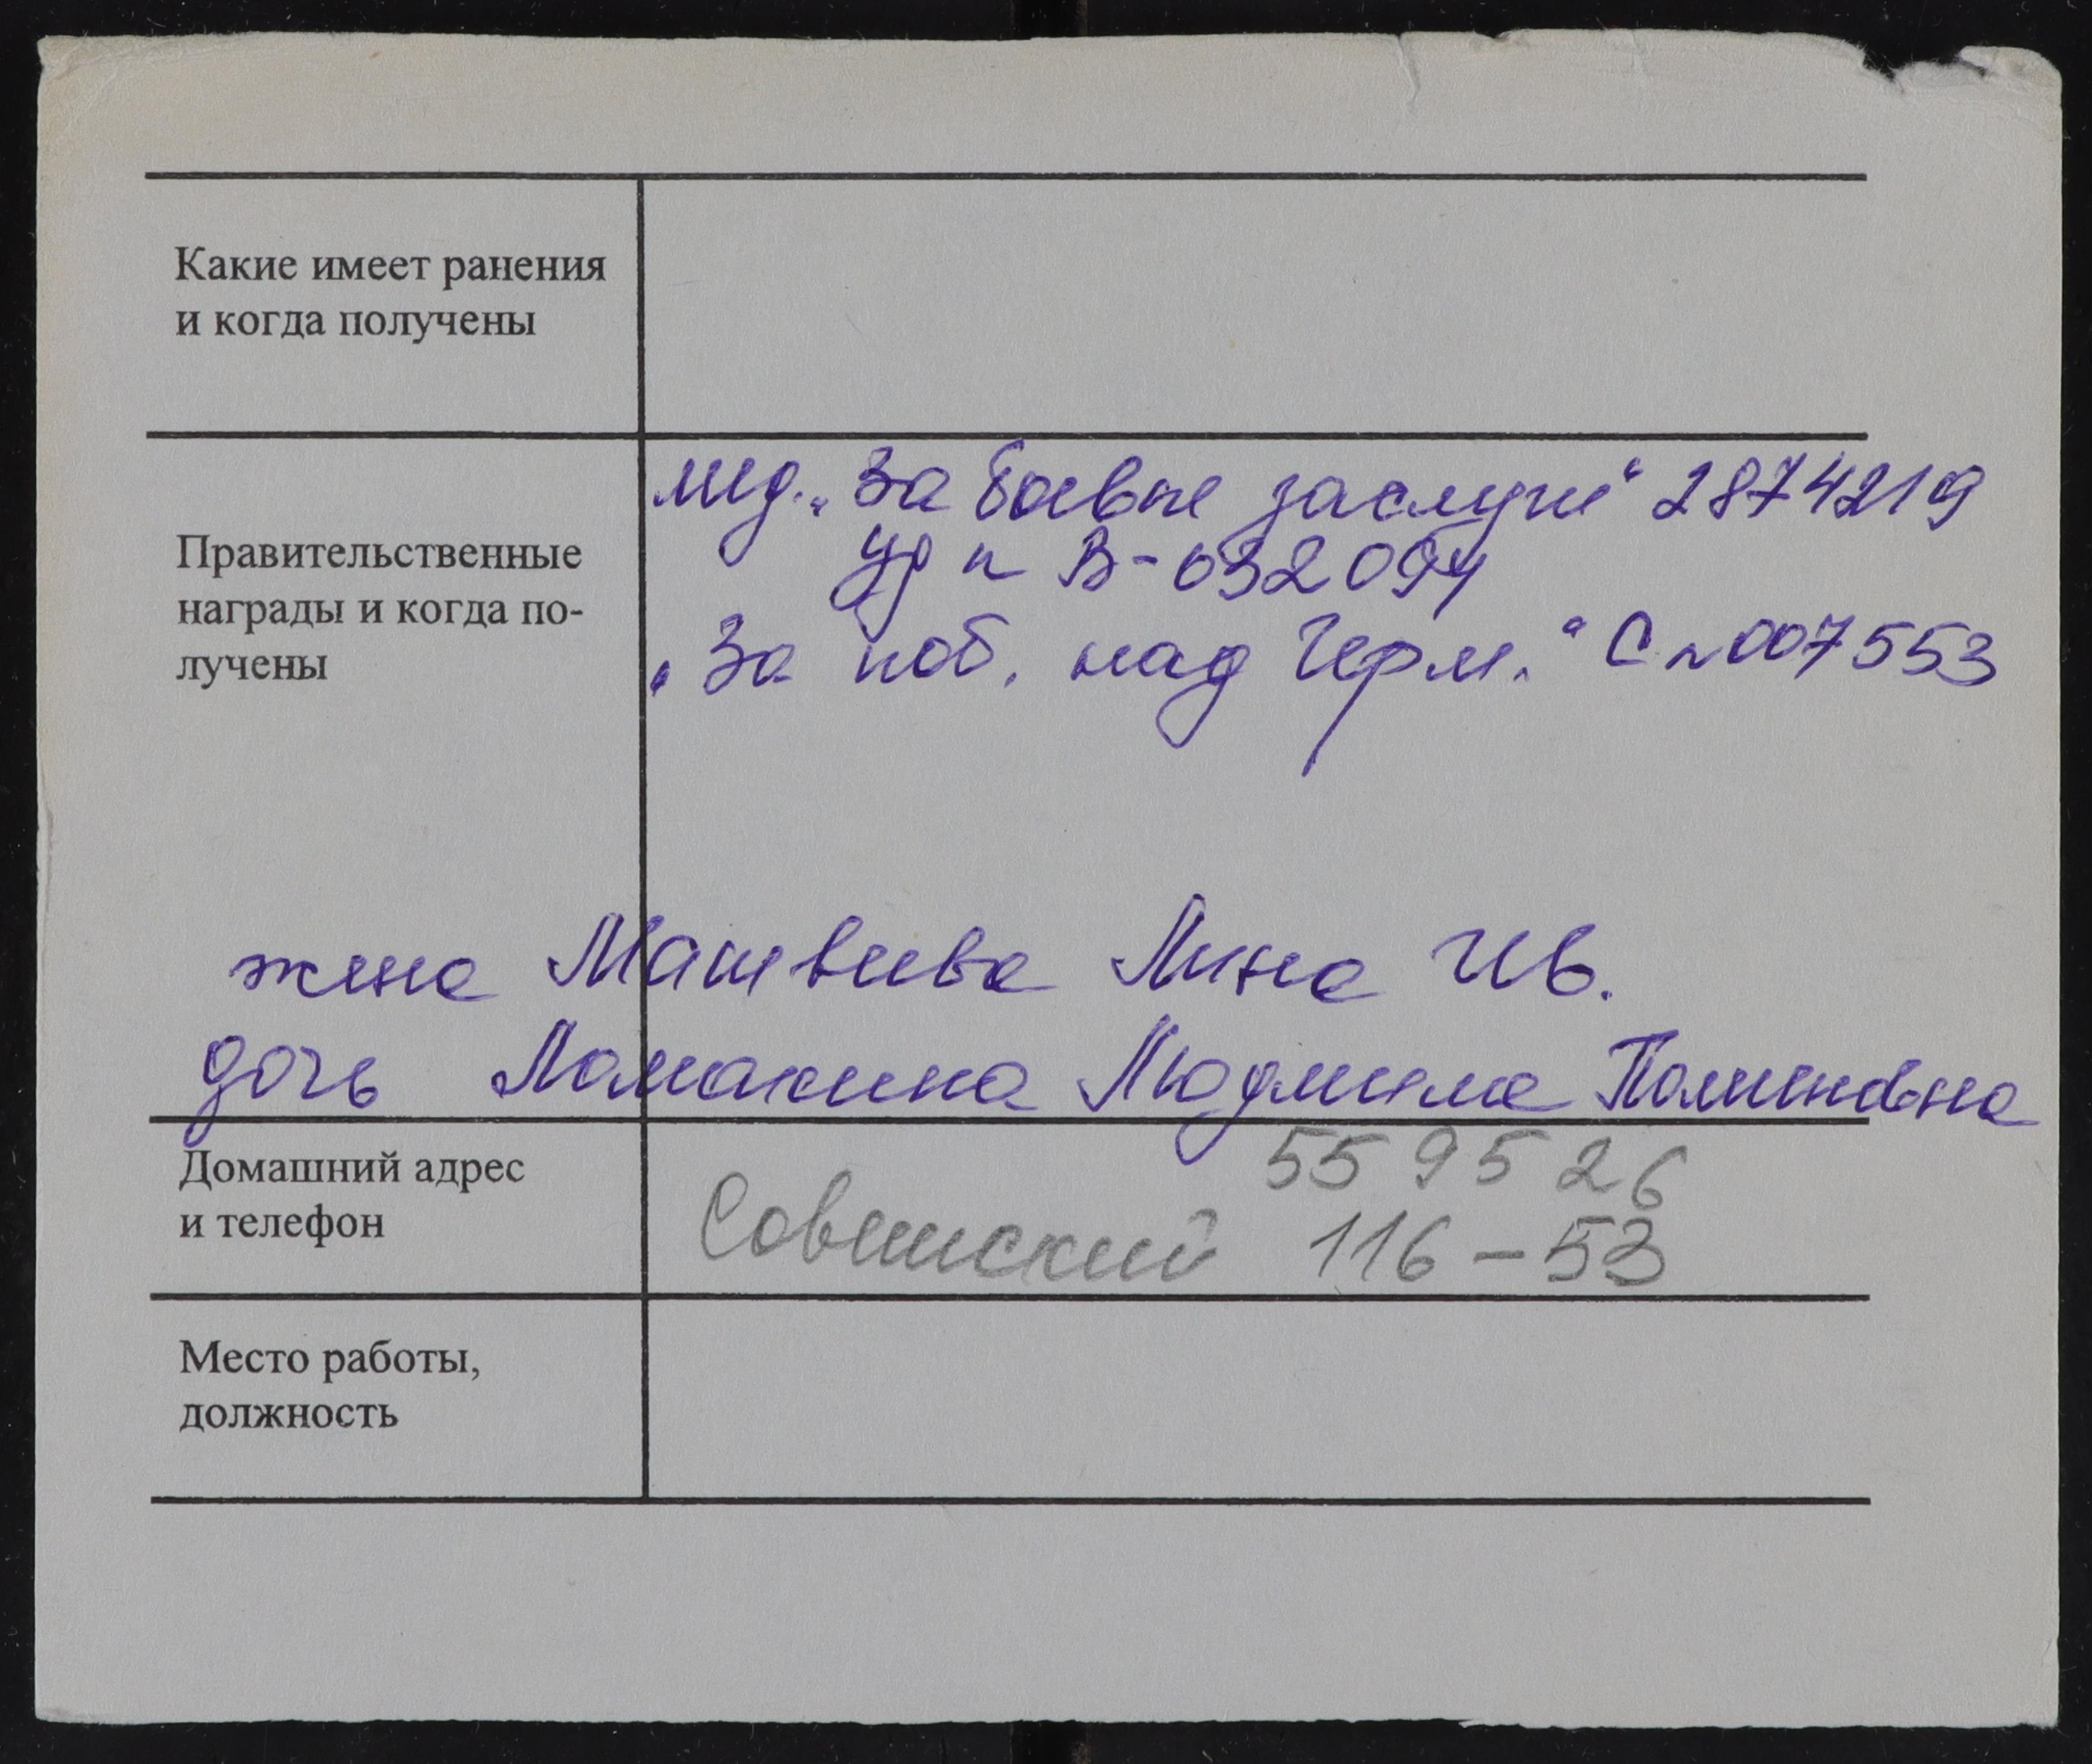 Какие имеет ранения
и когда получены
мед. „За боевые заслуги“ 2874219
уд n В-032094
Правительственные
награды и когда по-
лучены
„За поб. над Герм.“ С n 007553
жена Матвеева Лина Ив.
дочь Ломакина Людмила
Домашний адрес
и телефон
559526
Советский 116-53
Место работы,
должность